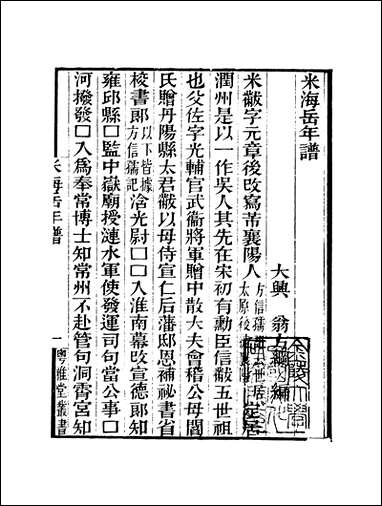 米海岳年譜
大興 翁方綱 編
米黻字元章後改寫芾襄陽人方信孺 世居太原後 定居
潤州是以一作吳人其先在宋初有勳臣信黻五世祖
也父佐字光輔官武衞將軍贈中散大夫會稽公母閻
氏贈丹陽縣太君黻以母侍宣仁后潘邸恩補祕書省
校書郞以下皆據方信孺記浛光尉口口入淮南幕改宣德郞知
雍邱縣口監中嶽廟授漣水軍使發運司句當公事口
河撥發口入爲奉常博士知常州不赴管句洞霄宮知
米海岳年譜 一 粵雅堂叢書